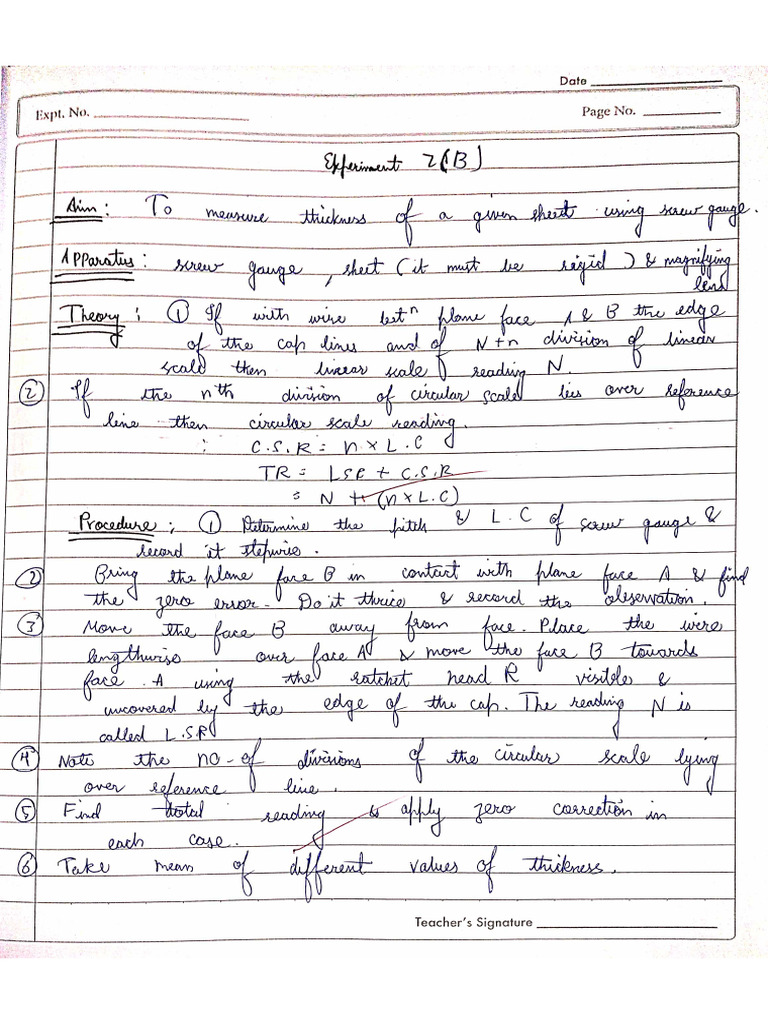 Date
Expt. No.
Page No.
Experiment 2(B)
Aim : To measure thickness of a given sheet using screw gauge.
Apparatus : screw gauge , sheet (it must be rigid) & magnifying
lens
Theory : ① If with wire betⁿ plane face A & B the edge
of the cap lines and of N+n division of linear
scale then linear scale reading N.
② If the nth division of circular scale lies over reference
line then circular scale reading.
∴ C.S.R = n × L.C
TR = LSR + C.S.R
= N + (n × L.C)
Procedure ; ① Determine the pitch & L.C of screw gauge &
record it stepwise.
② Bring the plane face B in contact with plane face A & find
the zero error. Do it thrice & record the observation.
③ Move the face B away from face. Place the wire
lengthwise over face A & move the face B towards
face . A using the ratchet head R visible &
uncovered by the edge of the cap. The reading N is
called L.SR
④ Note the no-of divisions of the circular scale lying
over reference line .
⑤ Find total reading & apply zero correction in
each case.
⑥ Take mean of different values of thickness.
Teacher's Signature